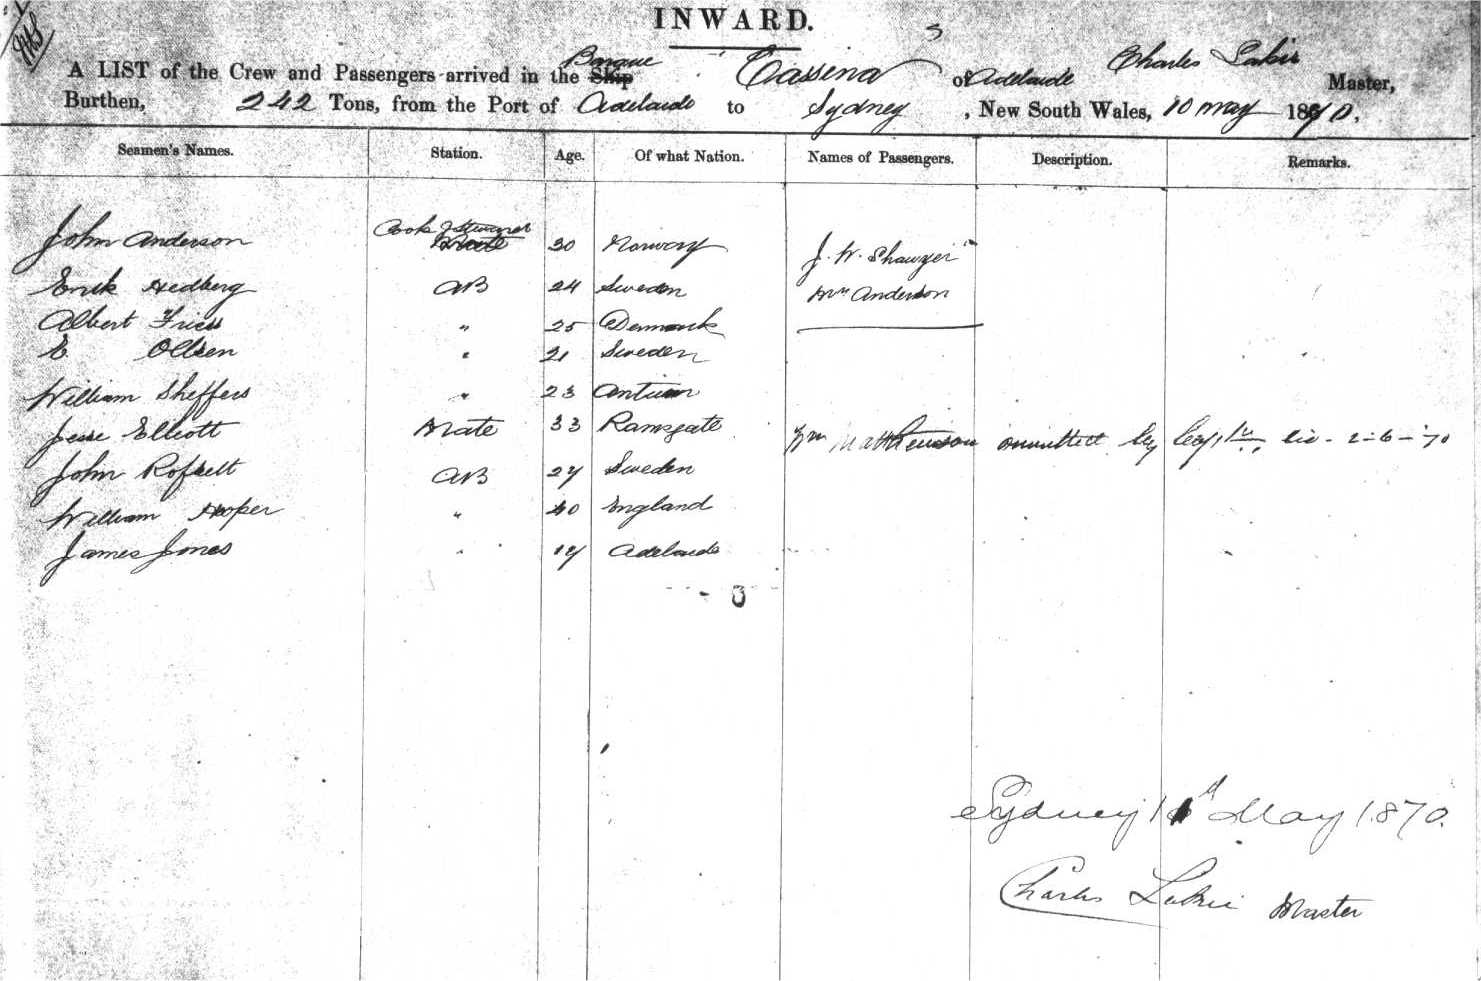 INWARD.
A LIST of the Crew and Passengers arrived in the Ship Barque Cassina of Adelaide Charles Lakie Master,
Burthen, 242 Tons, from the Port of Adelaide to Sydney, New South Wales, 10 May 1870.
Seamen's Names. Station. Age. Of what Nation. Names of Passengers. Description. Remarks.
John Anderson Cook & Steward Mate 30 Norway J. W. Shawyer
Erick Hedberg AB 24 Sweden Mrs Anderson
Albert Friess " 25 Denmark
E Ollsen " 21 Sweden
William Sheffers " 23
Jesse Ellcott Mate 33 Ramsgate Wm Matthewson ommitted by
John AB 27 Sweden
William Hooper " 40 England
James Jones " 17 Adelaide
Sydney May 1870.
Charles Lakie Master